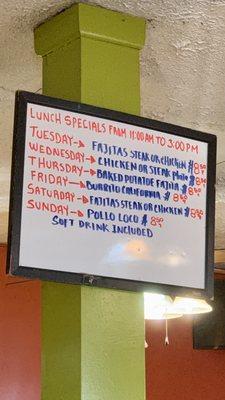 LUNCH SPECIALS FROM 11:00AM TO 3:00PM
TUESDAY→ FAJITAS STEAK OR CHICKEN $8.50
WEDNESDAY→ CHICKEN OR STEAK $8.50
THURSDAY→ BAKED POTATOE FAJITA $8.50
FRIDAY→ BURRITO CALIFORNIA $8.50
SATURDAY→ FAJITAS STEAK OR CHICKEN $8.50
SUNDAY→ POLLO LOCO $8.50
SOFT DRINK INCLUDED
$8